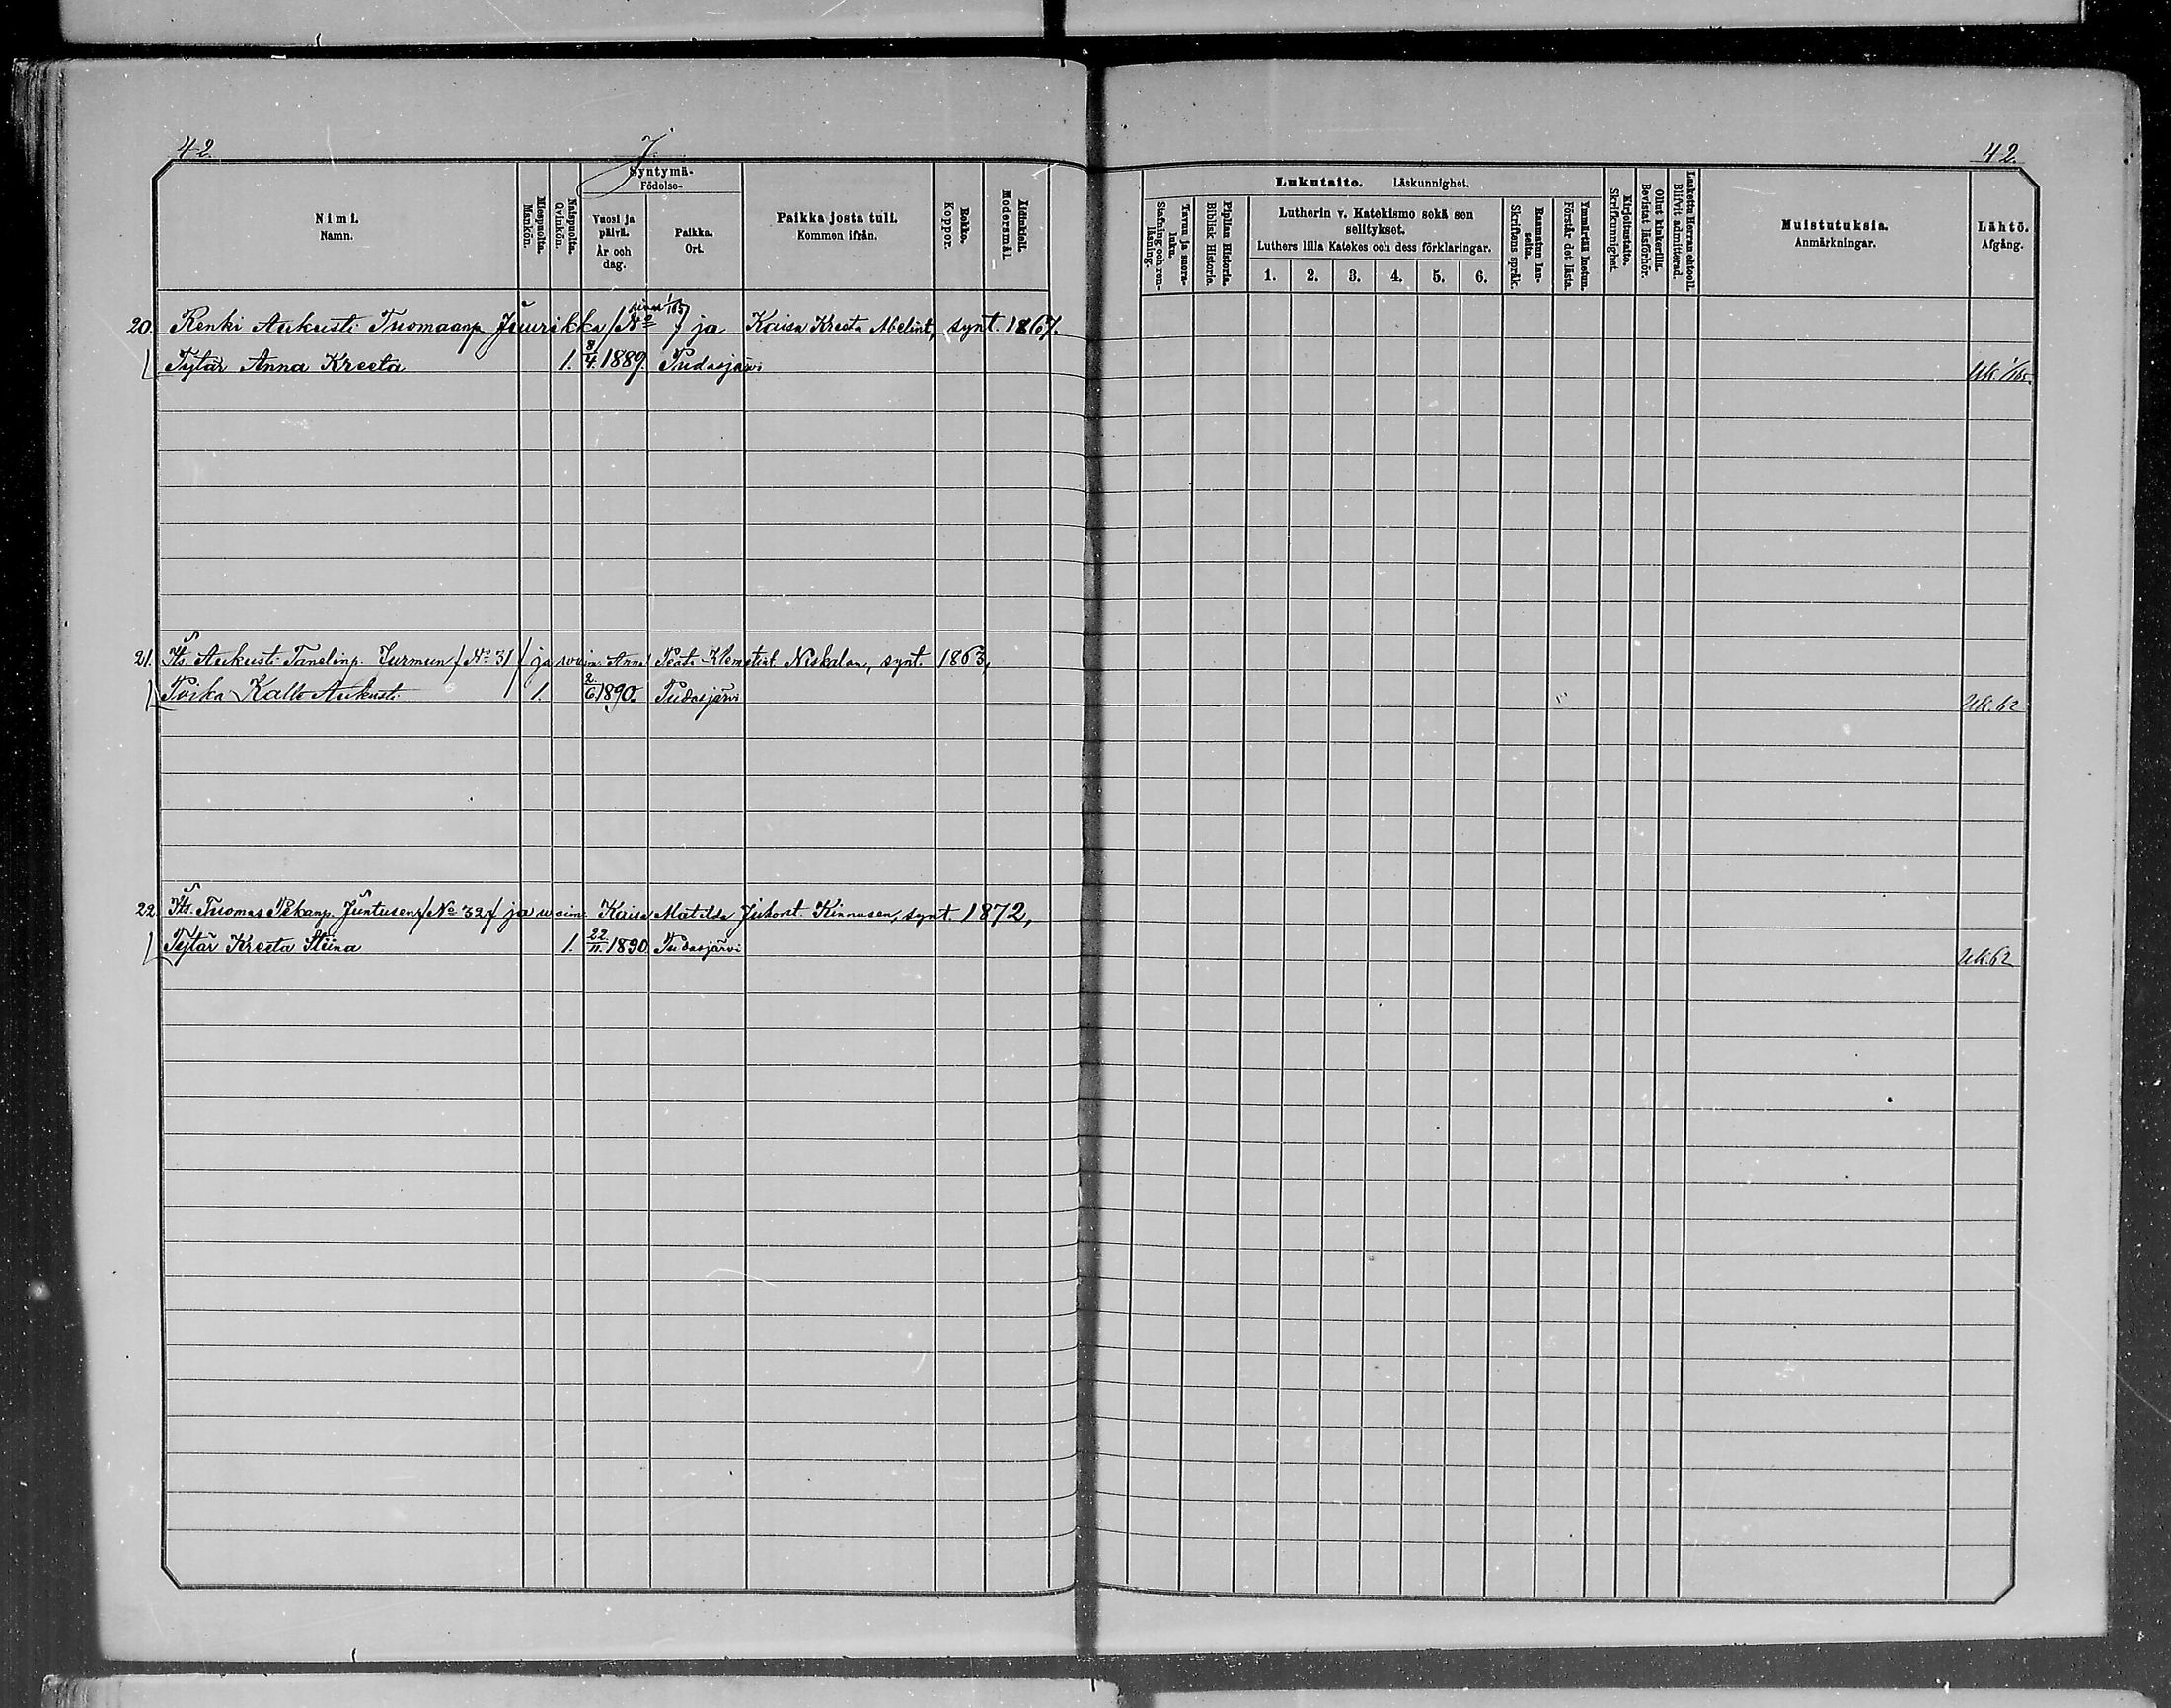 42. J. 42.
Nimi. Namn.
Miespuolta. Mankön.
Naispuolta. Qvinkön.
Syntymä- Födelse-
Vuosi ja päivä. År och dag.
Paikka. Ort.
Paikka josta tuli. Kommen ifrån.
Rokko. Koppor.
Äidinkieli. Modersmål.
Lukutaito. Läskunnighet.
Tavuu ja suora- luku. Stafning och ren- läsning.
Piplian Historia. Biblisk Historia.
Lutherin v. Katekismo sekä sen selitykset.
Luthers lilla Katekes och dess förklaringar.
1. 2. 3. 4. 5. 6.
Raamatun lau- seita. Skriftens språk.
Ymmärtää luetun. Förstår det lästa.
Kirjoitustaito. Skrifkunnighet.
Ollut kinkerillä. Bevistat läsförhör.
Laskettu Herran ehtooll. Blifvit admitterad.
Muistutuksia. Anmärkningar.
Lähtö. Afgång.
20. Renki Aukusti Tuomaanp Juurikka (No 1/165) ja Kaisa Kreeta Abelint, synt. 1867.
Tytär Anna Kreeta 1. 8/4 1889. Pudasjärvi Uk. 1/165.
21. Its. Aukusti Tanelinp. Jurmun (No 31) ja waim. Anna Niskalan, synt. 1863,
Poika Kalle Aukusti 1. 2/6 1890. Pudasjärvi Uk. 62
22. Its. Tuomas Pekanp. Juntusen (No 32) ja waim. Kaisa Matilda Juhont. Kinnusen, synt. 1872,
Tytär Kreeta Stiina 1. 22/11 1890 Pudasjärvi Uk. 62